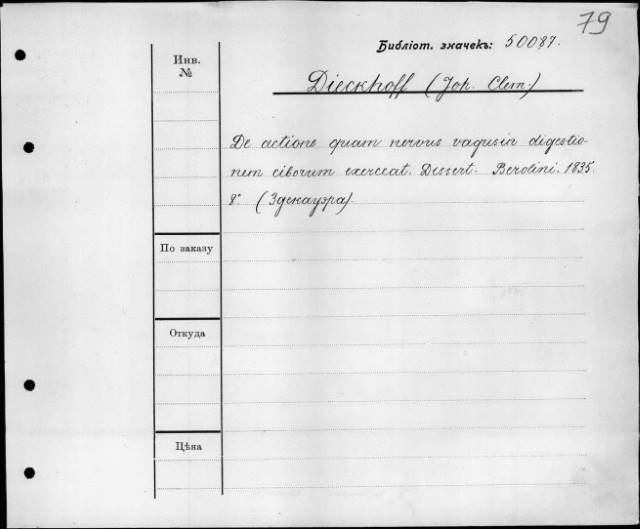 79
Библіот. значекъ: 50087.
Инв.
№
Dieckhoff (Joh. Clem.)
De actione quam nervus vagus in digestio-
nem ciborum exerceat. Dissert. Berolini. 1835.
8° (Здекауэра)
По заказу
Откуда
Цѣна